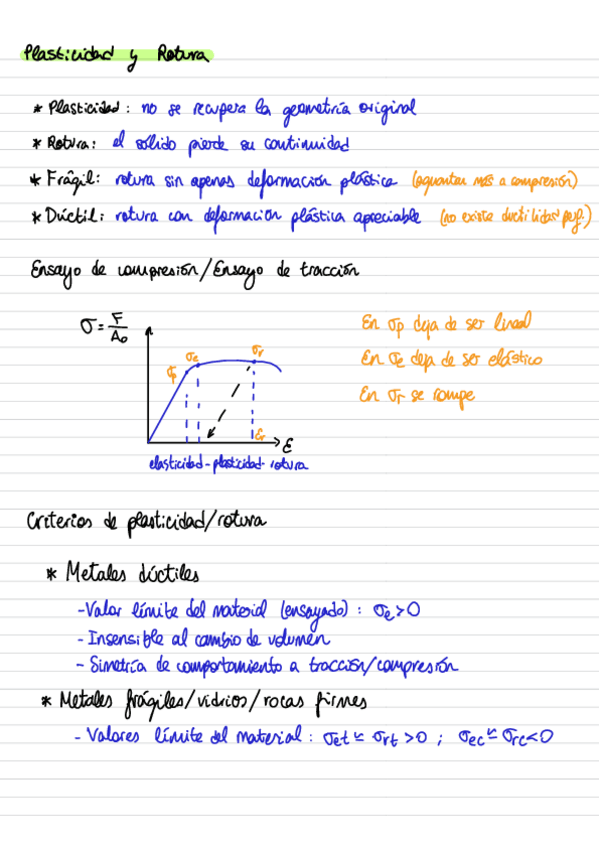 Plasticidad y Rotura
* Plasticidad: no se recupera la geometría original
* Rotura: el sólido pierde su continuidad
* Frágil: rotura sin apenas deformación plástica (aguantan más a compresión)
* Dúctil: rotura con deformación plástica apreciable (no existe ductilidad perf.)
Ensayo de compresión/Ensayo de tracción
σ = F/A₀
σp σe σr
εr
ε
elasticidad - plasticidad - rotura
En σp deja de ser lineal
En σe deja de ser elástico
En σr se rompe
Criterios de plasticidad/rotura
* Metales dúctiles
- Valor límite del material (ensayado): σe > 0
- Insensible al cambio de volumen
- Simetría de comportamiento a tracción/compresión
* Metales frágiles/vidrios/rocas firmes
- Valores límite del material: σet ≃ σrt > 0 ; σec ≃ σrc < 0